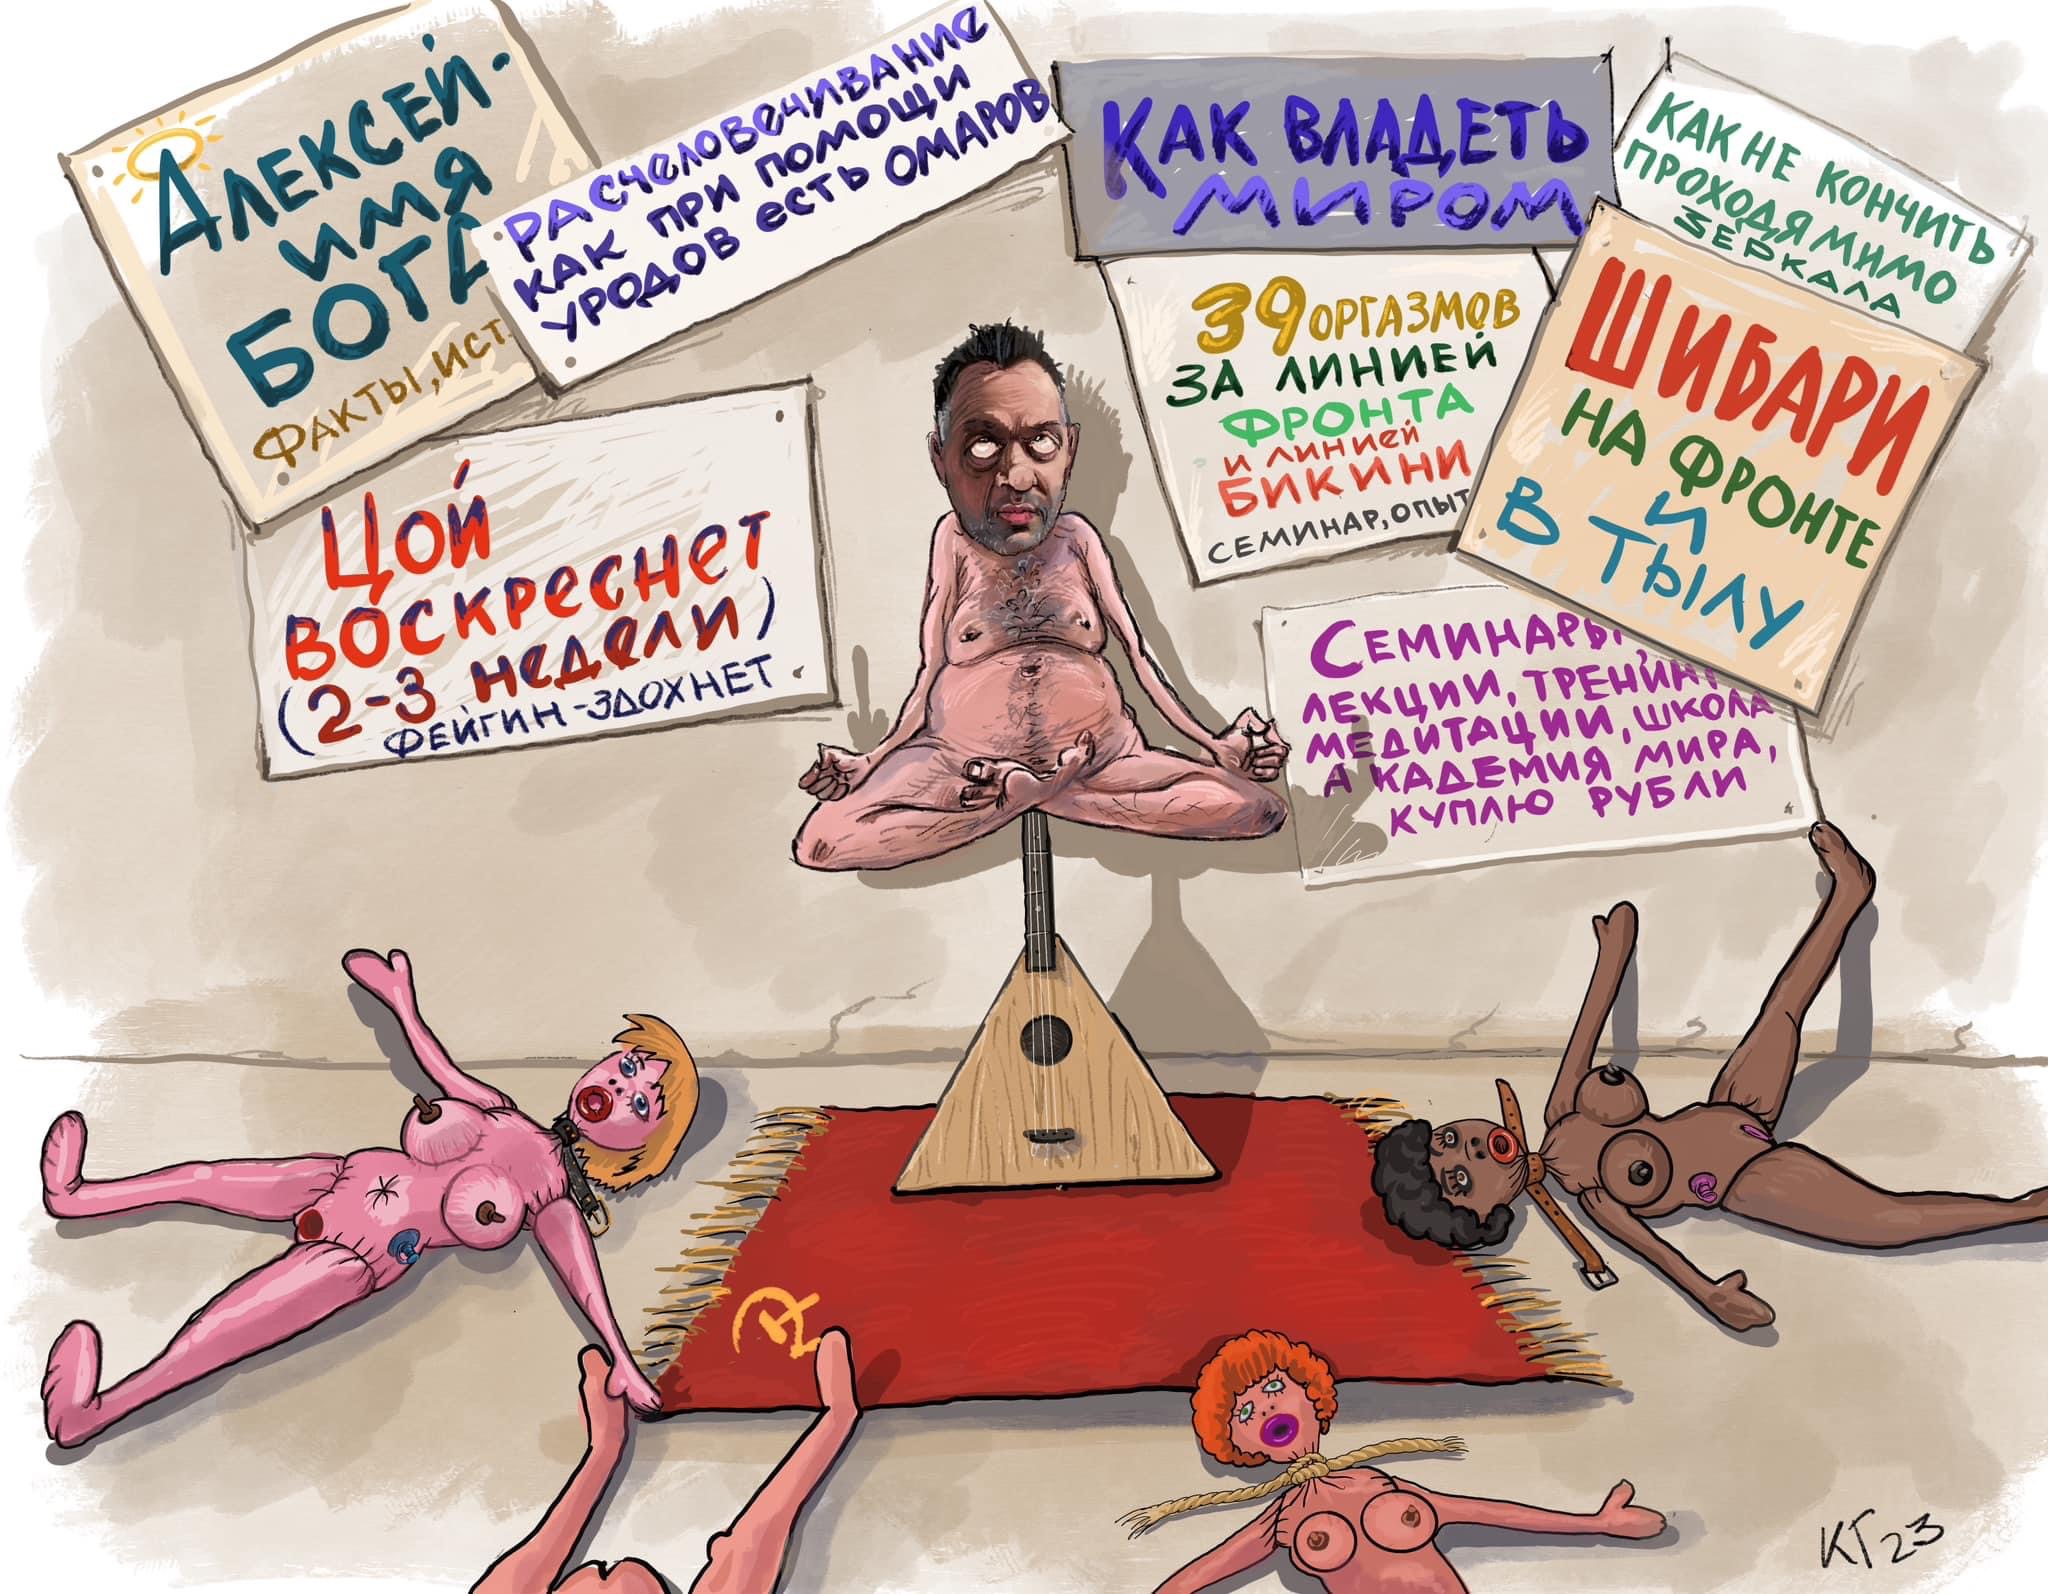 АЛЕКСЕЙ-
ИМЯ
БОГА
ФАКТЫ, ИСТ.
РАСЧЕЛОВЕЧИВАНИЕ
КАК ПРИ ПОМОЩИ
УРОДОВ ЕСТЬ ОМАРОВ
КАК ВЛАДЕТЬ
МИРОМ
КАК НЕ КОНЧИТЬ
ПРОХОДЯ МИМО
ЗЕРКАЛА
39 ОРГАЗМОВ
ЗА ЛИНИЕЙ
ФРОНТА
И ЛИНИЕЙ
БИКИНИ
СЕМИНАР, ОПЫТ
ШИБАРИ
НА ФРОНТЕ
И
В ТЫЛУ
ЦОЙ
ВОСКРЕСНЕТ
(2-3 НЕДЕЛИ)
ФЕЙГИН-ЗДОХНЕТ
СЕМИНАРЫ,
ЛЕКЦИИ, ТРЕНИНГ
МЕДИТАЦИИ, ШКОЛА
АКАДЕМИЯ МИРА,
КУПЛЮ РУБЛИ
КГ 23